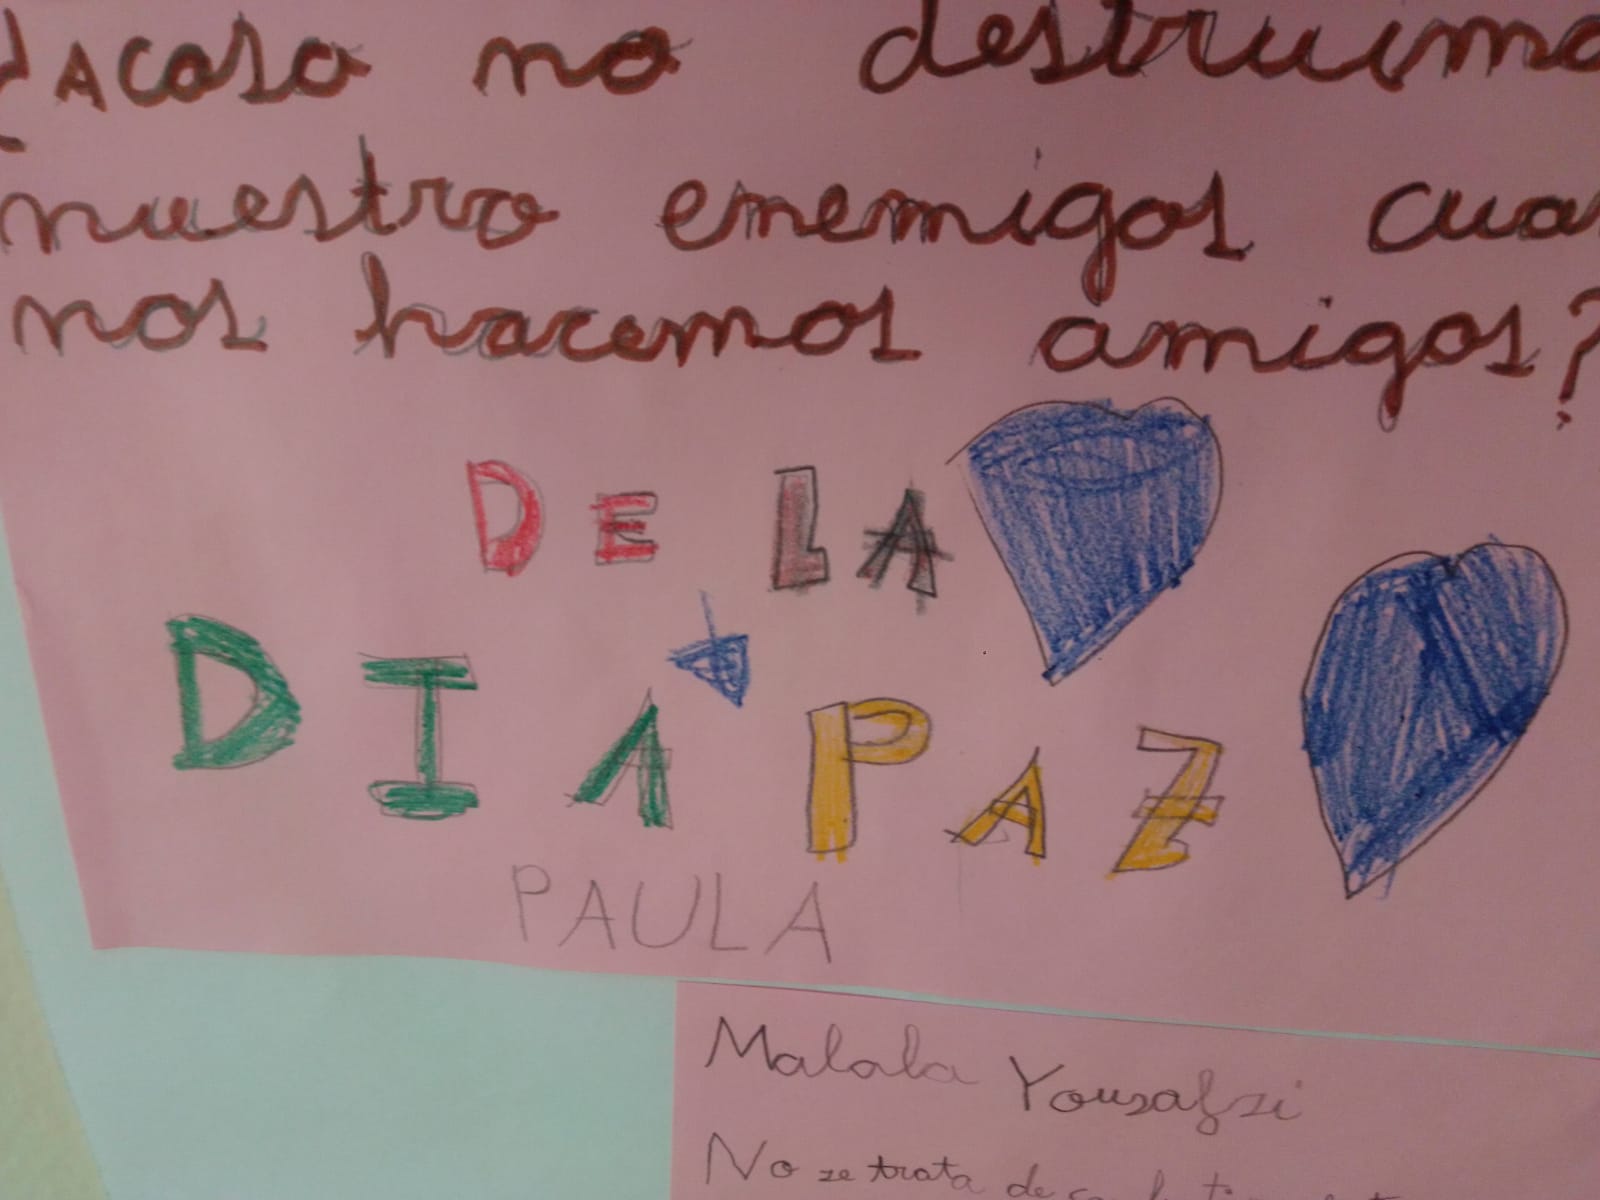 ¿Acaso no destruimo
nuestro enemigos cua
nos hacemos amigos?
DE LA
DIA PAZ
PAULA
Malala Yousafzi
No ze trata de